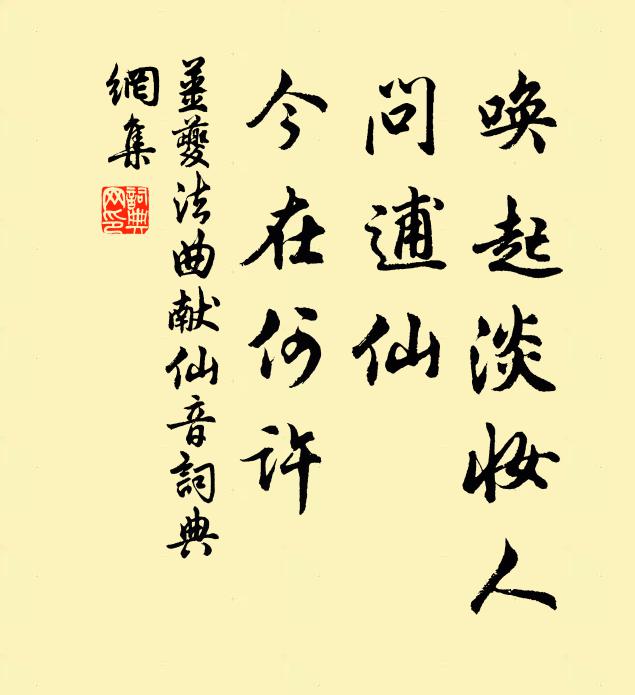 唤起淡妆人
问逋仙
今在何许
薑夔法曲献仙音詞典
網集
詞典
网印